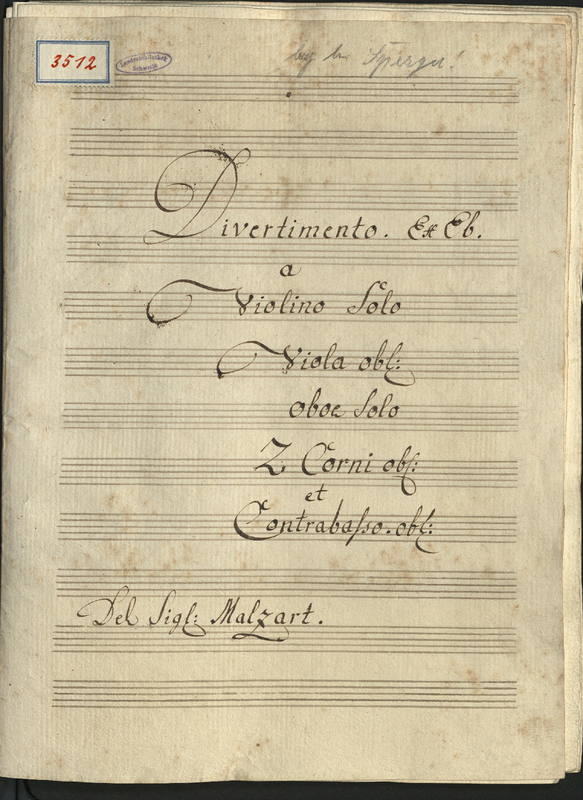 3512
Landesbibliothek
Schwerin
Divertimento. Ex Eb.
a
Violino Solo
Viola obl:
oboe Solo
2 Corni obl:
et
Contrabaſso. obl:
Del Sigl: Malzart.